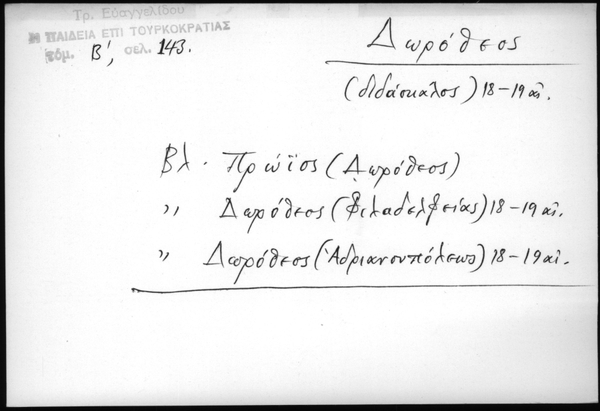 Τρ. Εὐαγγελίδου
Η ΠΑΙΔΕΙΑ ΕΠΙ ΤΟΥΡΚΟΚΡΑΤΙΑΣ
τόμ. Β', σελ. 143.
Δωρόθεος
(διδάσκαλος) 18-19 αἰ.
Βλ. Πρώϊος (Δωρόθεος)
" Δωρόθεος (Φιλαδελφείας) 18-19 αἰ.
" Δωρόθεος (Ἀδριανουπόλεως) 18-19 αἰ.